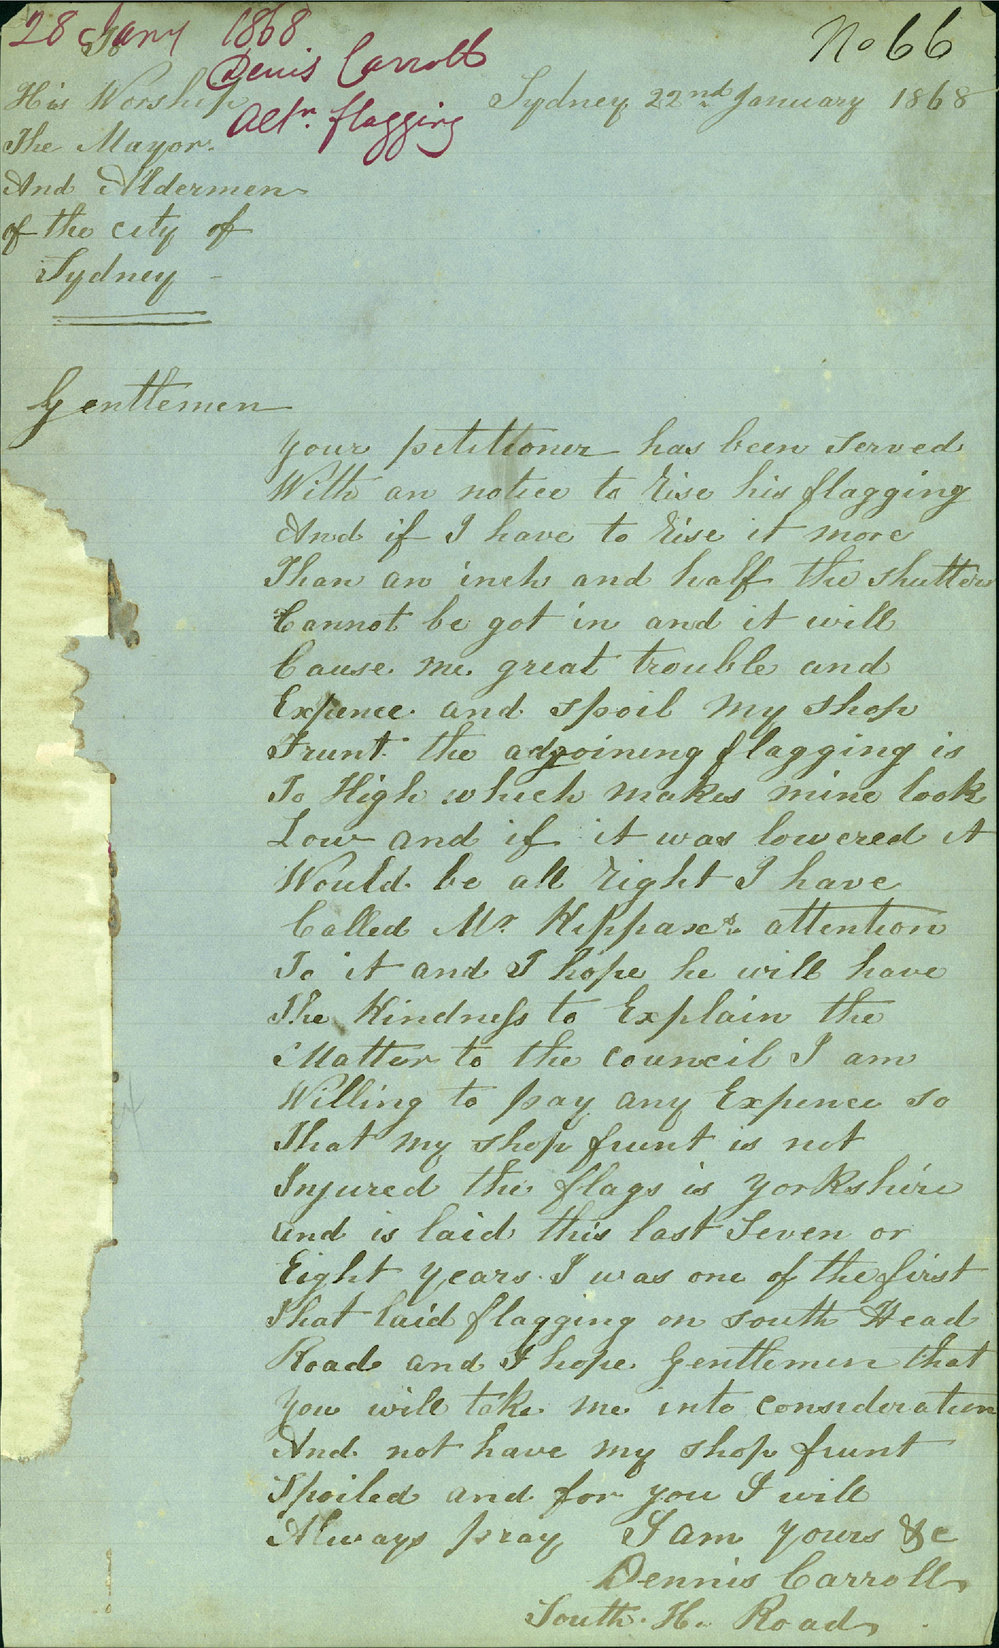 28 Jany 1868
Denis Carroll
Altn. flagging
No 66
To
His Worship
The Mayor.
And Aldermen
of the city of
Sydney -
Sydney 22nd January 1868
Gentlemen
your petitioner has been served
With an notice to rise his flagging
And if I have to rise it more
Than an inch and half the shutters
Cannot be got in and it will
Cause me great trouble and
Expence and spoil my shop
Frunt the adjoining flagging is
To High which makes mine look
Low and if it was lowered it
Would be all right I have
Called Mr Kippaxs attention
To it and I hope he will have
The Kindness to Explain the
Matter to the council I am
Willing to pay any Expence so
That my shop frunt is not
Injured the flags is yorkshire
and is laid this last seven or
Eight years. I was one of the first
That laid flagging on south Head
Road and I hope Gentlemen that
you will take me into consideration
And not have my shop frunt
Spoiled and for you I will
Always pray I am yours &c
Dennis Carroll
South. H. Road